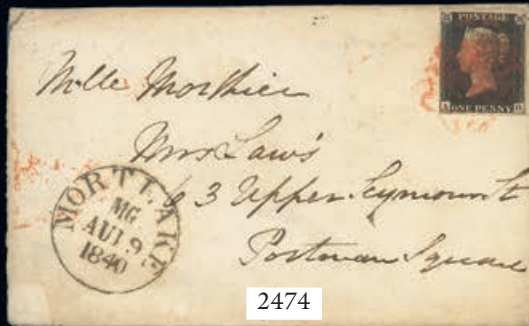 POSTAGE
ONE PENNY
Mlle Morthier
Mrs Laws
63 Upper Seymour St
Portman Square
MORTLAKE
MG
AU 9
1840
2474